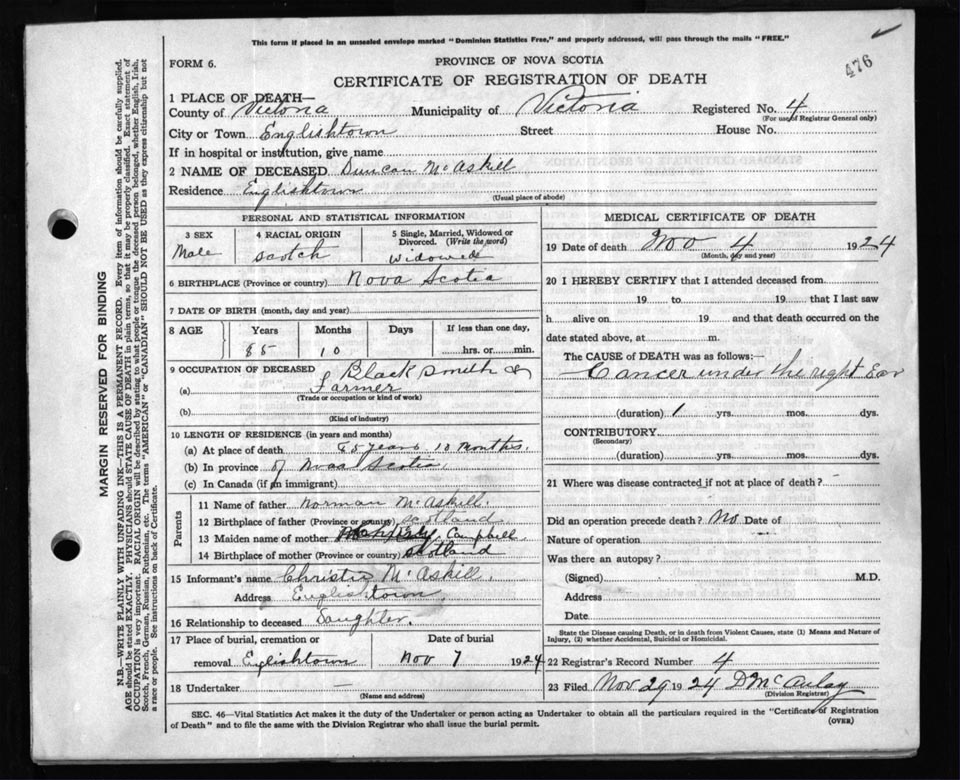 This form if placed in an unsealed envelope marked "Dominion Statistics Free," and properly addressed, will pass through the mails "FREE."
476
FORM 6.
PROVINCE OF NOVA SCOTIA
CERTIFICATE OF REGISTRATION OF DEATH
1 PLACE OF DEATH—
County of Victoria Municipality of Victoria Registered No. 4
(For use of Registrar General only)
City or Town Englishtown Street House No.
If in hospital or institution, give name
2 NAME OF DECEASED Duncan McAskill
Residence Englishtown
(Usual place of abode)
PERSONAL AND STATISTICAL INFORMATION
3 SEX 4 RACIAL ORIGIN 5 Single, Married, Widowed or Divorced. (Write the word)
Male Scotch Widowed
6 BIRTHPLACE (Province or country) Nova Scotia
7 DATE OF BIRTH (month, day and year)
8 AGE Years Months Days If less than one day,
85 10 hrs. or min.
9 OCCUPATION OF DECEASED Black Smith &
(a) Farmer
(Trade or occupation or kind of work)
(b)
(Kind of industry)
10 LENGTH OF RESIDENCE (in years and months)
(a) At place of death 85 years 10 months
(b) In province of Nova Scotia
(c) In Canada (if an immigrant)
Parents
11 Name of father Norman McAskill
12 Birthplace of father (Province or country) Scotland
13 Maiden name of mother Campbell
14 Birthplace of mother (Province or country) Scotland
15 Informant's name Christie McAskill
Address Englishtown
16 Relationship to deceased Daughter.
17 Place of burial, cremation or Date of burial
removal Eglishtown Nov 7 1924
18 Undertaker —
(Name and address)
MEDICAL CERTIFICATE OF DEATH
19 Date of death Nov 4 1924
(Month, day and year)
20 I HEREBY CERTIFY that I attended deceased from
19 to 19 that I last saw
h alive on 19 and that death occurred on
date stated above, at m.
The CAUSE of DEATH was as follows:—
Cancer under the right Ear
(duration) 1 yrs. mos. dys.
CONTRIBUTORY
(Secondary)
(duration) yrs. mos. dys.
21 Where was disease contracted if not at place of death?
Did an operation precede death? No Date of
Nature of operation
Was there an autopsy?
(Signed) M.D.
Address
Date
State the Disease causing Death, or in death from Violent Causes, state (1) Means and Nature of
Injury, (2) whether Accidental, Suicidal or Homicidal.
22 Registrar's Record Number 4
23 Filed Nov 29 1924 D McAulay
(Division Registrar)
SEC. 46—Vital Statistics Act makes it the duty of the Undertaker or person acting as Undertaker to obtain all the particulars required in the "Certificate of Registration
of Death" and to file the same with the Division Registrar who shall issue the burial permit.
(OVER)
MARGIN RESERVED FOR BINDING
N.B.—WRITE PLAINLY WITH UNFADING INK—THIS IS A PERMANENT RECORD. Every item of information should be carefully supplied.
AGE should be stated EXACTLY. PHYSICIANS should STATE CAUSE OF DEATH in plain terms, so that it may be properly classified. Exact statement of
OCCUPATION is very important. RACIAL ORIGIN will be described by stating to what people or tongue the deceased person belonged, whether English, Irish,
Scotch, French, German, Russian, Ruthenian, etc. The terms "AMERICAN" or "CANADIAN" SHOULD NOT BE USED as they express citizenship but not
a race or people. See instructions on back of Certificate.